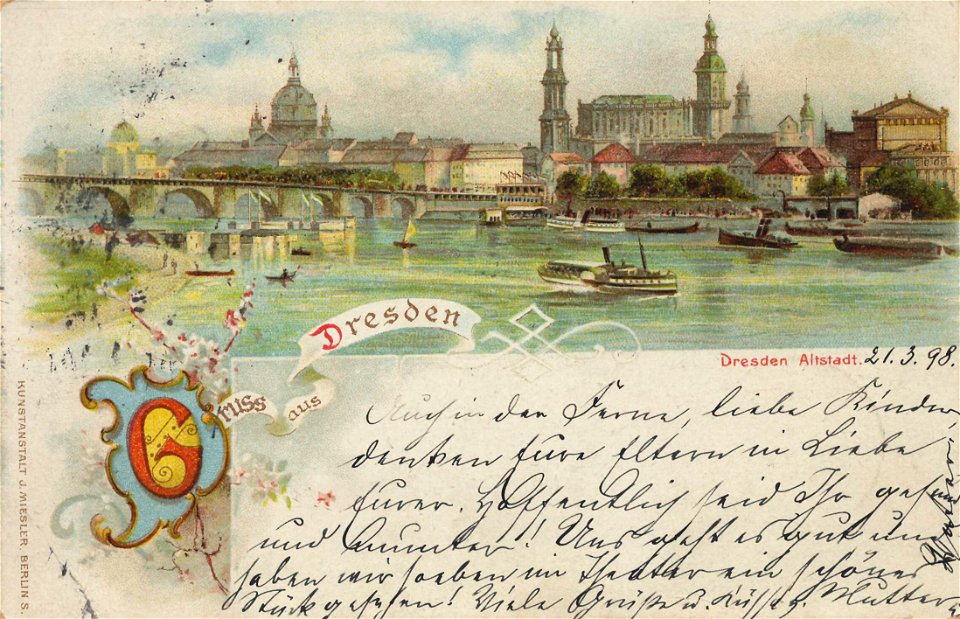 Dresden
Gruss aus
Dresden Altstadt. 21.3.98.
KUNSTANSTALT J. MIESLER, BERLIN S.
Auch in der Ferne, liebe Kinder,
denken Eure Eltern in Liebe
Eurer. Hoffentlich seid Ihr gesund
und munter! Uns geht es gut und
haben wir soeben im Theater ein schönes
Stück gesehen! Viele Grüße u. Küsse v. Mutter
u. Vater